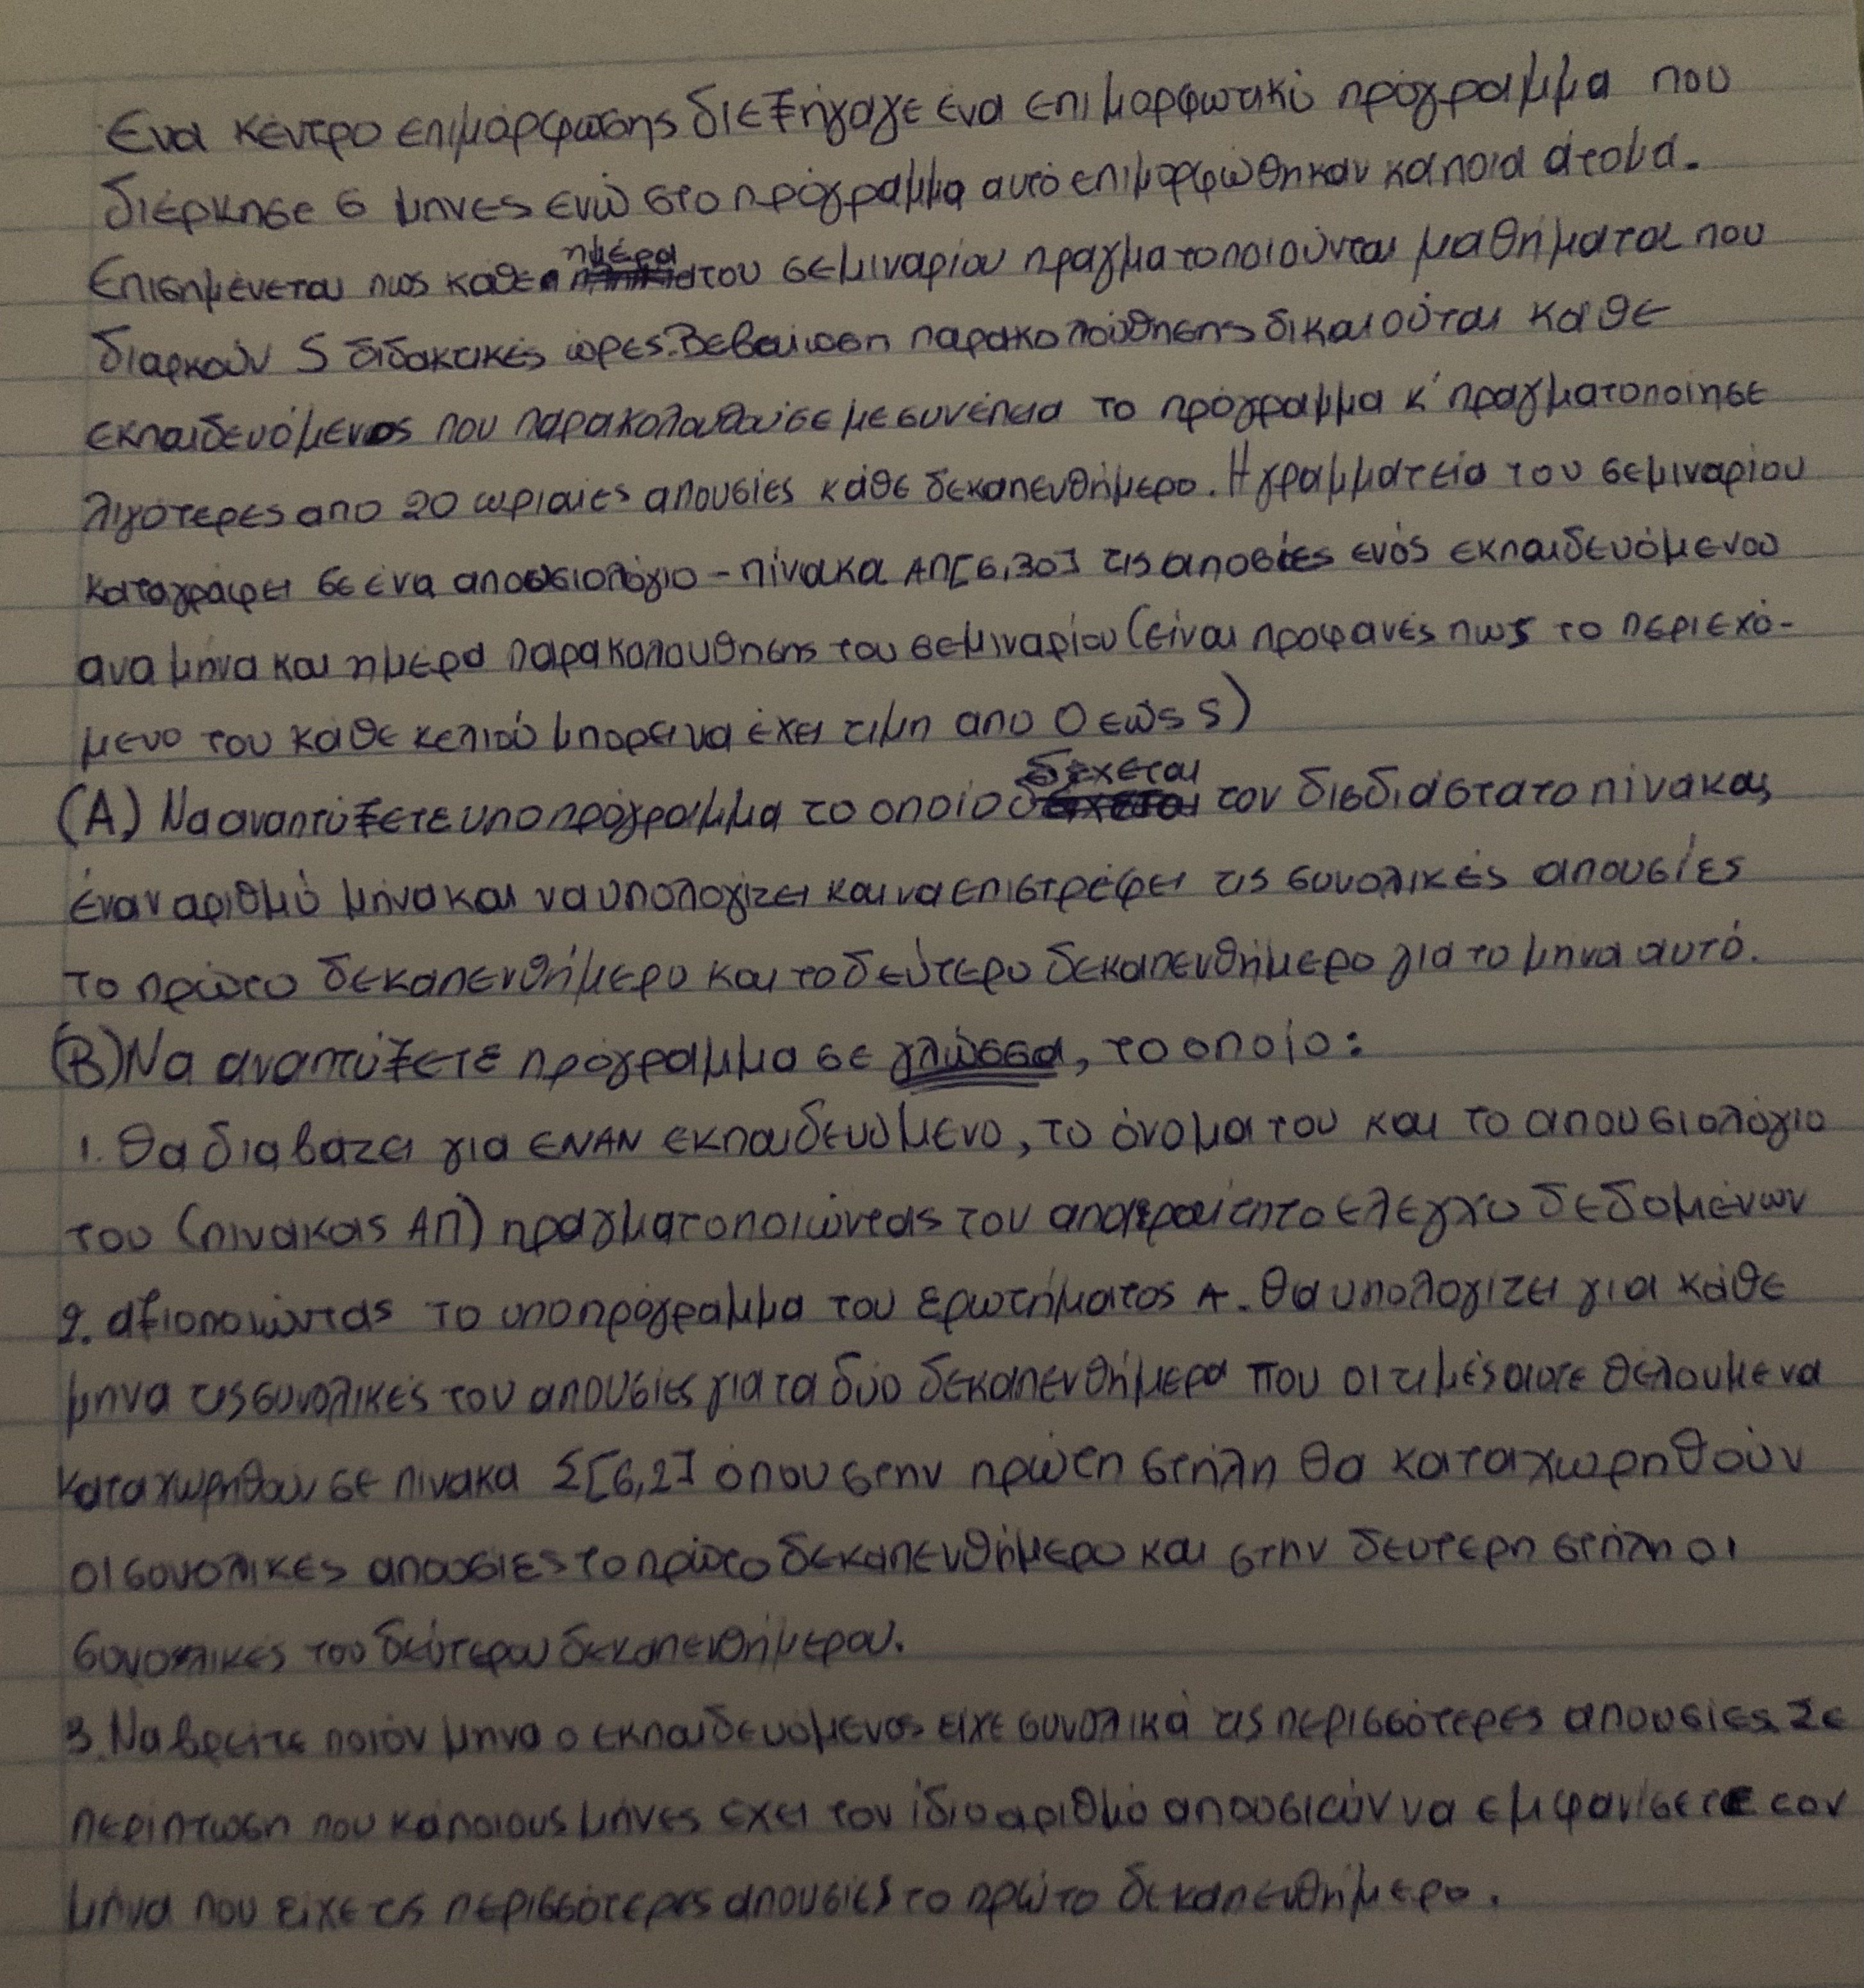 Ενα κέντρο επιμόρφωσης διεξήγαγε ένα επιμορφωτικό πρόγραμμα που
διέρκησε 6 μηνες ενώ στο πρόγραμμα αυτό επιμορφώθηκαν κάποια άτομα.
Επισημένεται πως κάθε ημέρα του σεμιναρίου πραγματοποιούνται μαθήματα που
διαρκούν 5 διδακτικές ώρες. Βεβαίωση παρακολούθησης δικαιούται κάθε
εκπαιδευόμενος που παρακολουθούσε με συνέπεια το πρόγραμμα κ' πραγματοποίησε
λιγότερες απο 20 ωριαίες απουσίες κάθε δεκαπενθήμερο. Η γραμματεία του σεμιναρίου
καταγράφει σε ένα απουσιολόγιο - πίνακα ΑΠ[6,30] τις αποσίες ενός εκπαιδευόμενου
ανα μήνα και ημέρα παρακολουθησης του σεμιναρίου (είναι προφανές πως το περιεχό-
μενο του κάθε κελιού μπορει να έχει τιμη απο 0 εώς 5)
(Α) Να αναπτύξετε υποπρόγραμμα το οποίο δέχεται τον δισδιάστατο πίνακας
έναν αριθμό μήνα και να υπολογίζει και να επιστρέφει τις συνολικές απουσίες
το πρώτο δεκαπενθήμερο και το δεύτερο δεκαπενθήμερο για το μηνα αυτό.
(Β) Να αναπτύξετε πρόγραμμα σε γλώσσα, το οποίο:
1. Θα διαβάζει για ΕΝΑΝ εκπαιδευόμενο, το όνομα του και το απουσιολόγιο
του (πινακας ΑΠ) πραγματοποιώντας τον απαραίτητο ελεγχο δεδομένων
2. αξιοποιώντας το υποπρόγραμμα του ερωτήματος Α. θα υπολογίζει για κάθε
μηνα τις συνολικές του απουσίες για τα δύο δεκαπενθήμερα που οι τιμές θέλουμε να
καταχωρηθούν σε πινακα Σ[6,2] όπου στην πρώτη στήλη θα καταχωρηθούν
οι συνολικές απουσίες το πρώτο δεκαπενθήμερο και στην δευτερη στήλη οι
συνολικές του δεύτερου δεκαπενθήμερου.
3. Να βρείτε ποιόν μηνα ο εκπαιδευόμενος είχε συνολικά τις περισσότερες απουσίες. Σε
περίπτωση που κάποιους μήνες έχει τον ίδιο αριθμό απουσιών να εμφανίσετε τον
μήνα που είχε τις περισσότερες απουσίες το πρώτο δεκαπενθήμερο.